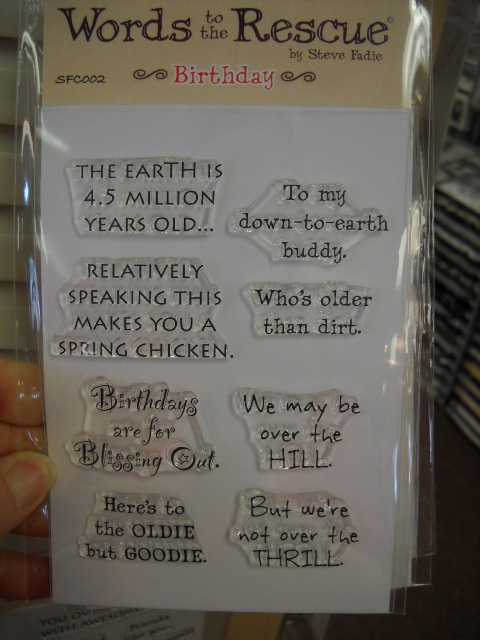 Words to the Rescue©
by Steve Fadie
SFC002
Birthday
THE EARTH IS
4.5 MILLION
YEARS OLD...
RELATIVELY
SPEAKING THIS
MAKES YOU A
SPRING CHICKEN.
Birthdays
are for
Blissing Out.
Here's to
the OLDIE
but GOODIE.
To my
down-to-earth
buddy.
Who's older
than dirt.
We may be
over the
HILL.
But we're
not over the
THRILL.